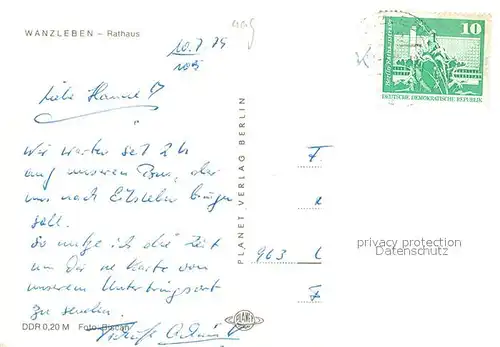 WANZLEBEN – Rathaus
10.7.79
Liebe Hanne!
Wir warten seit 2 h
auf unseren Bus, der
uns nach Eilsleben bringen
soll.
So nutze ich die Zeit
um Dir ne Karte von
unserem Unterbringungsort
zu senden.
DDR 0,20 M Foto: Biscan
PLANET VERLAG BERLIN
PLANET
10
DEUTSCHE DEMOKRATISCHE REPUBLIK
963
privacy protection
Datenschutz